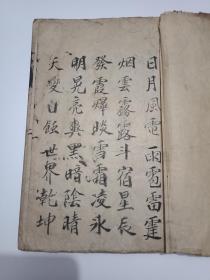 日月風電雨雹雷霆
烟雲霧露斗宿星辰
發霞燁晱雪霜凌氷
明晃亮爽黑暗陰晴
天变自𩟗世界乾坤